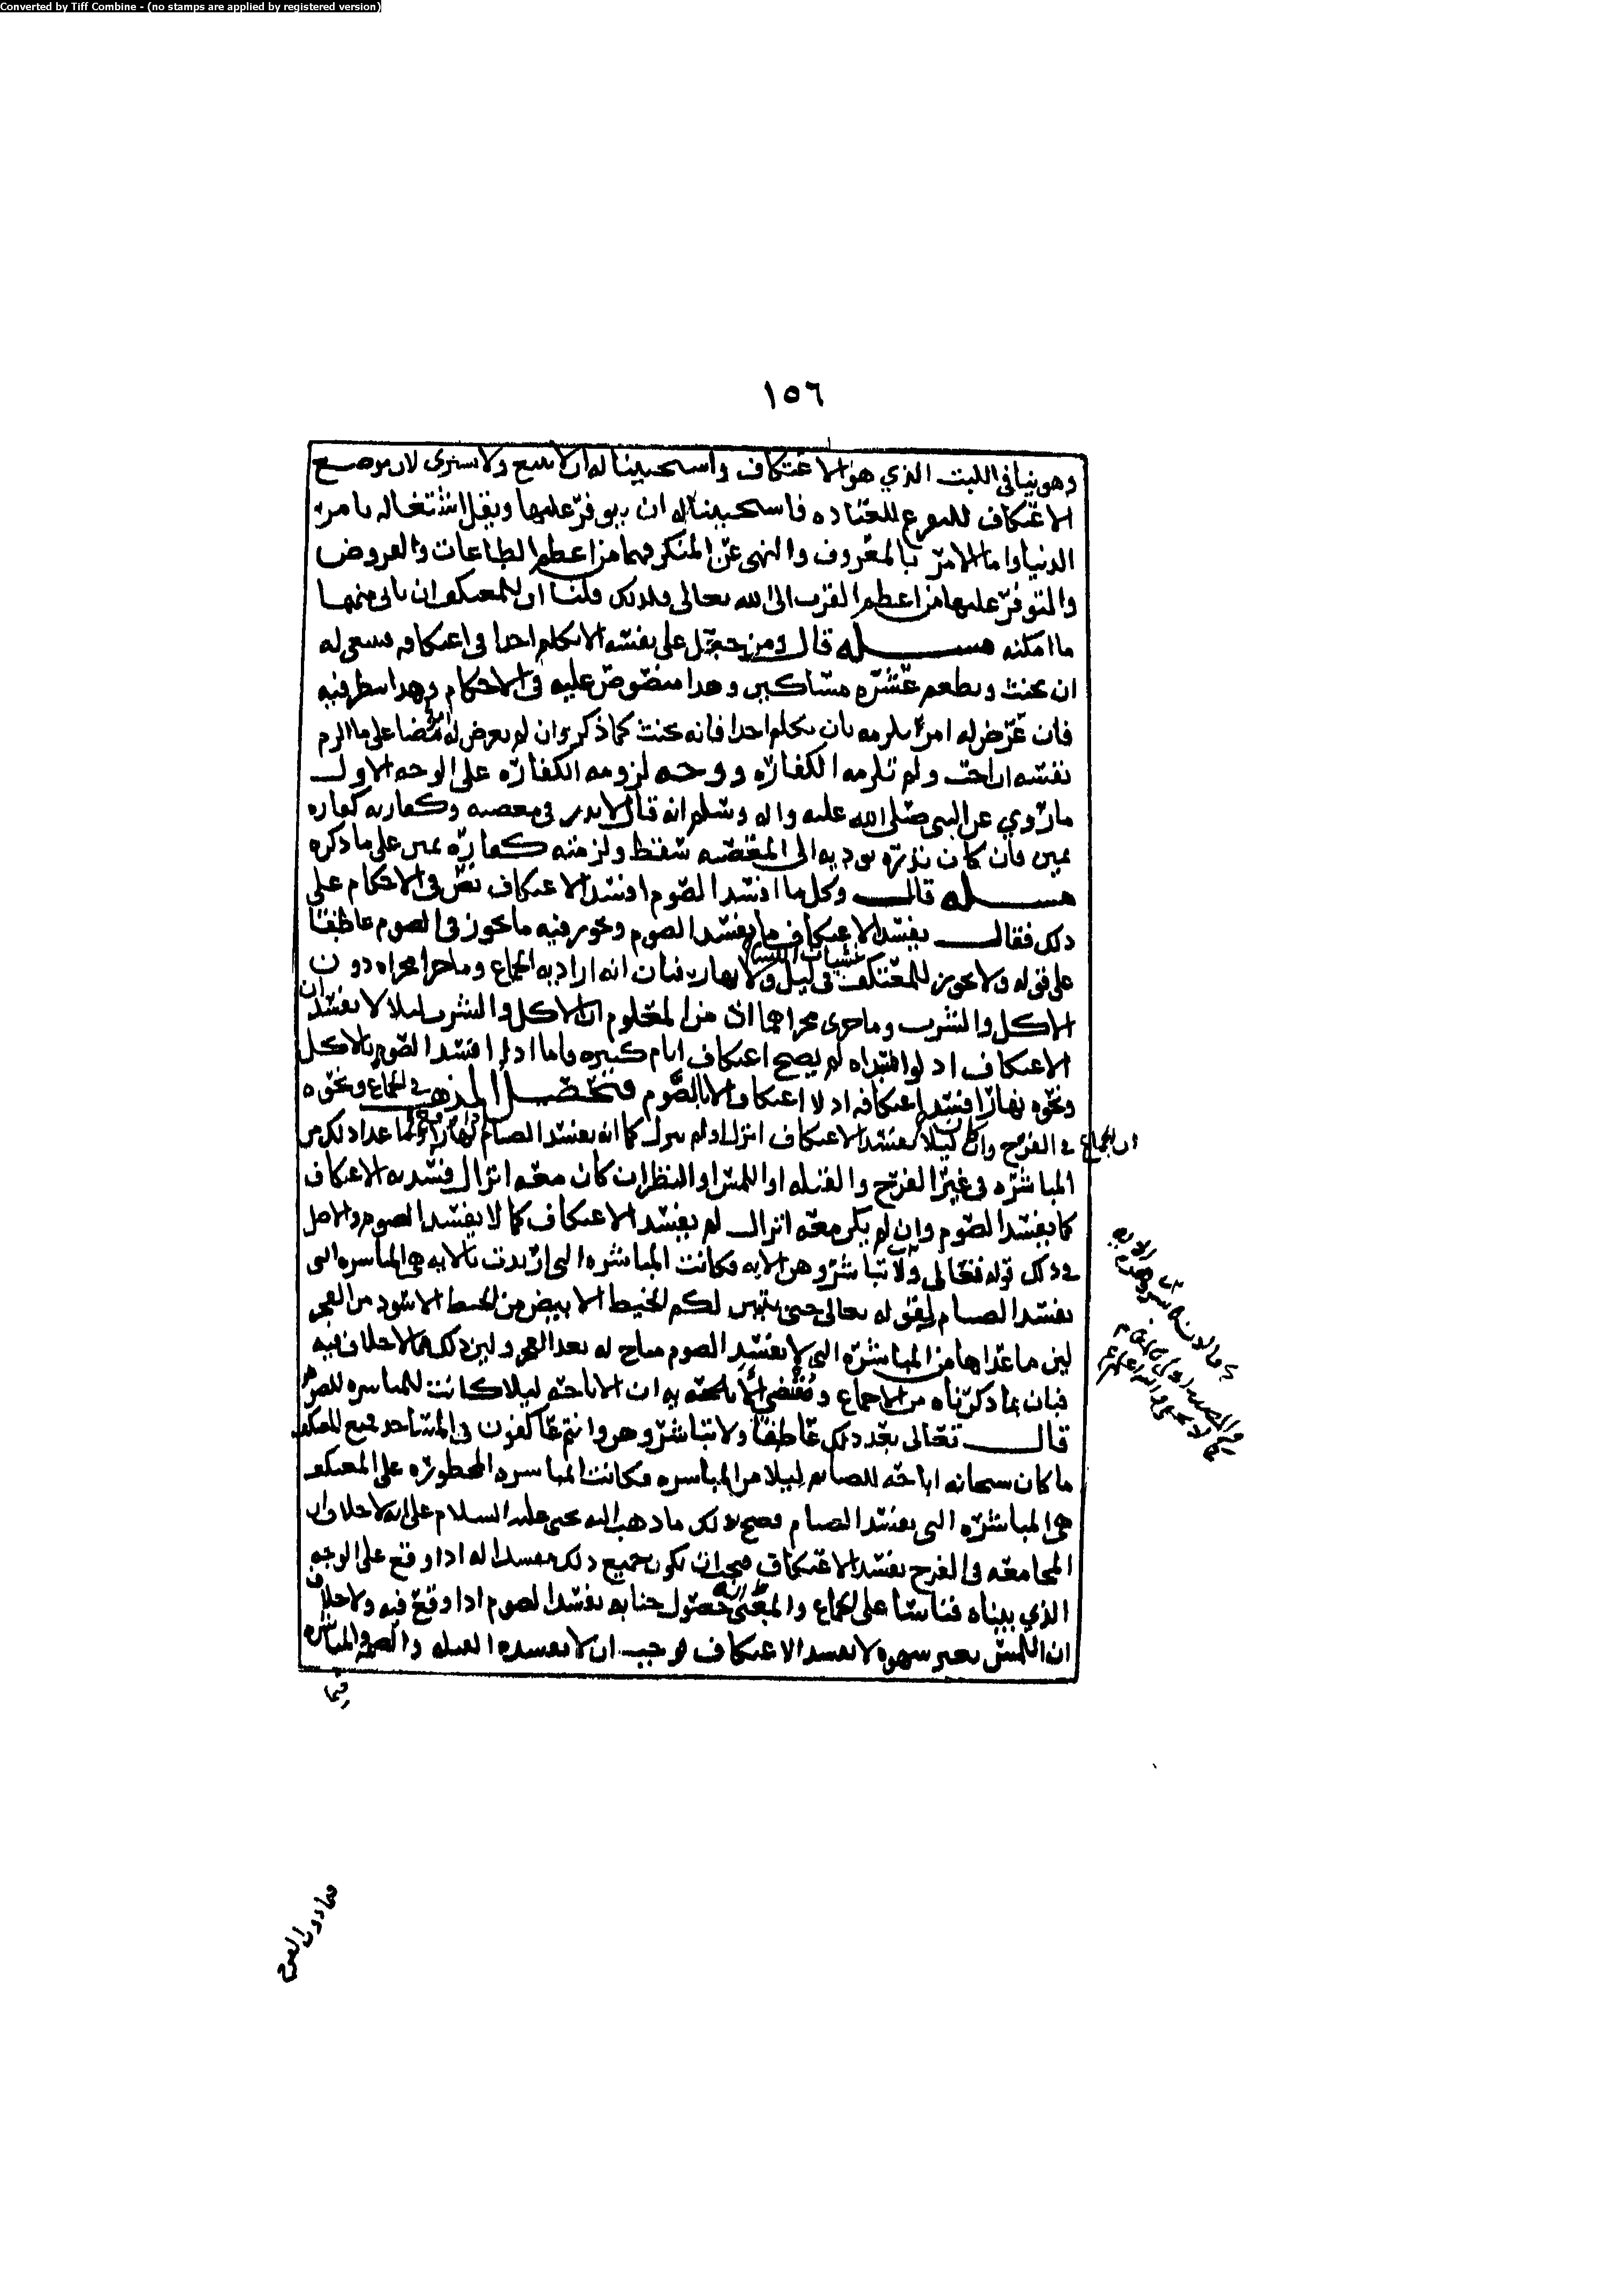 Converted by Tiff Combine - (no stamps are applied by registered version)
١٥٦
الاعتكاف واستحببنا له ان لا يبيع ولا يشتري لان موضع
الاعتكاف فاستحببنا له ان يتوفر عليها ويقل اشتغاله بامر
الدنيا واما الامر بالمعروف والنهي عن المنكر فهما من اعظم الطاعات والفروض
والتوفر عليهما من اعظم القرب الى الله تعالى ولذلك قلنا ان للمعتكف ان ياتي منهما
ما امكنه مسئله قال ومن جعل على نفسه الا يكلم احدا في اعتكافه فينبغي له
ان يحنث ويطعم عشره مساكين وهذا منصوص عليه في الاحكام وهذا ينظر فيه
فان عرض له امر يلزمه بان يكلم احدا فانه يحنث كما ذكر وان لم يعرض له مضا على ما الزم
نفسه ان احب ولم تلزمه الكفاره ووجه لزومه الكفاره على الوجه الاول
ما روي عن النبي صلى الله عليه واله وسلم انه قال لا نذر في معصيه وكفارته كفاره
يمين فان كان نذره يوديه الى المعصيه سقط ولزمته كفاره يمين على ما ذكره
مسئله قال وكل ما افسد الصوم افسد الاعتكاف نص في الاحكام على
ذلك فقال يفسد الاعتكاف ما يفسد الصوم ويجوز فيه ما يجوز في الصوم عاطفا
على قوله ولا يجوز للمعتكف غشيان النسا في ليل ولا نهار فبان انه اراد به الجماع وما جرا مجراه دون
الاكل والشرب وما جرى مجراهما اذ من المعلوم ان الاكل والشرب ليلا لا يفسدان
الاعتكاف اذ لو افسداه لم يصح اعتكاف ايام كثيره فاما اذا افسد الصوم بالاكل
ونحوه نهارا فسد اعتكافه اذ لا اعتكاف الا بالصوم فتحصيل المذهب في الجماع ونحوه
ان الجماع في الفرج وان كان ليلا يفسد الاعتكاف انزل او لم ينزل كما انه يفسد الصيام نهارا وما عدا ذلك من
المباشره في غير الفرج والقبله او اللمس او النظر ان كان معه انزال فسد به الاعتكاف
كما يفسد الصوم وان لم يكن معه انزال لم يفسد الاعتكاف كما لا يفسد الصوم والاصل
في ذلك قوله تعالى ولا تباشروهن الايه فكانت المباشره التي اريدت بالايه هي المباشره التي
يفسد الصيام لقوله تعالى حتى يتبين لكم الخيط الابيض من الخيط الاسود من الفجر
لين ما عداها من المباشره التي لا يفسد الصوم مباح له بعد الفجر ولين ذلك مما لا خلاف فيه
فبان بما ذكرناه من الاجماع ان الاباحه ليلا كانت للمباشره
قال تعالى بعد ذلك عاطفا ولا تباشروهن وانتم عاكفون في المساجد فمنع المعتكف
ما كان سبحانه اباحه للصائم ليلا من المباشره فكانت المباشره المحظوره على المعتكف
هي المباشره التي يفسد الصيام فصح بذلك ما ذهب اليه يحيى عليه السلام على انه لا خلاف ان
المجامعه في الفرج يفسد الاعتكاف فيجب ان يكون جميع ذلك مفسدا له اذا وقع على الوجه
الذي بيناه قياسا على الجماع والمعنى انه حصول جنابه يفسد الصوم اذا وقع فيه ولا خلاف
ان اللمس بغير شهوه لا يفسد الاعتكاف فوجب ان لا يفسده القبله والمباشره
فيما
فيما دون الفرج